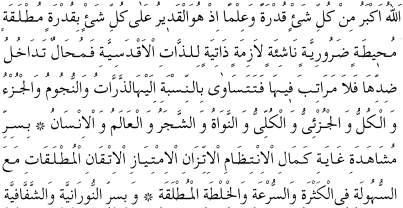 اَللهُ اَكْبَرُ مِنْ كُلِّ شَىْءٍ قُدْرَةً وَعِلْمًا اِذْ هُوَالْقَدِيرُ عَلٰى كُلِّ شَىْءٍ بِقُدْرَةٍ مُطْلَقَةٍ
مُحِيطَةٍ ضَرُورِيَّةٍ نَاشِئَةٍ لاَزِمَةٍ ذَاتِيَّةٍ لِلذَّاتِ الْاَقْدَسِيَّةِ فَمُحَالٌ تَدَاخُلُ
ضِدِّهَا فَلاَ مَرَاتِبَ فِيهَا فَتَتَسَاوٰى بِالنِّسْبَةِ اِلَيْهَاالذَّرَّاتُ وَالنُّجُومُ وَالْجُزْءُ
وَ الْكُلُّ وَ الْجُزْئِىُّ وَ الْكُلِّىُّ وَ النَّوَاةُ وَ الشَّجَرُ وَ الْعَالَمُ وَ الْاِنْسَانُ ٭ بِسِرِّ
مُشَاهَدَةِ غَايَةِ كَمَالِ الْاِنْتِظَامِ الْاِتِّزَانِ الْاِمْتِيَازِ الْاِتْقَانِ الْمُطْلَقَاتِ مَعَ
السُّهُولَةِ فِى الْكَثْرَةِ وَالسُّرْعَةِ وَالْخُلْطَةِ الْمُطْلَقَةِ ٭ وَ بِسِرِّ النُّورَانِيَّةِ وَالشَّفَّافِيَّةِ